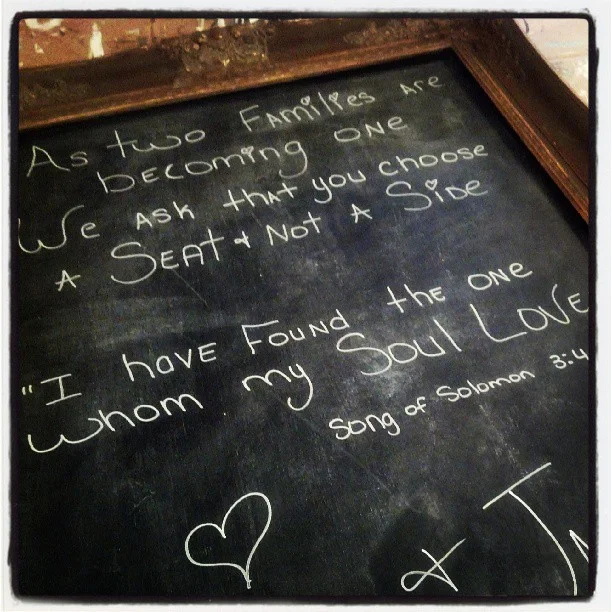 As two Families are
becoming one
We ask that you choose
a Seat & Not a Side
"I have Found the one
whom my Soul Love
Song of Solomon 3:4
&